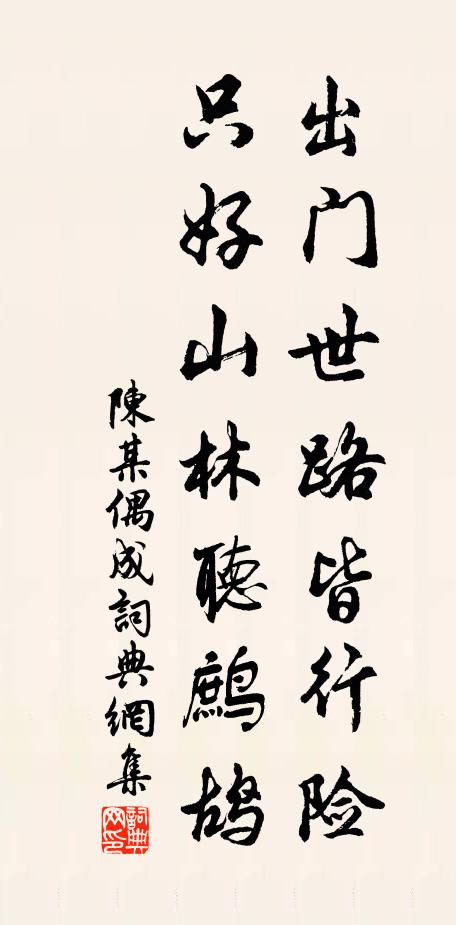 出门世路皆行险
只好山林聽鷓鸪
陳某偶成詞典網集
詞典網印